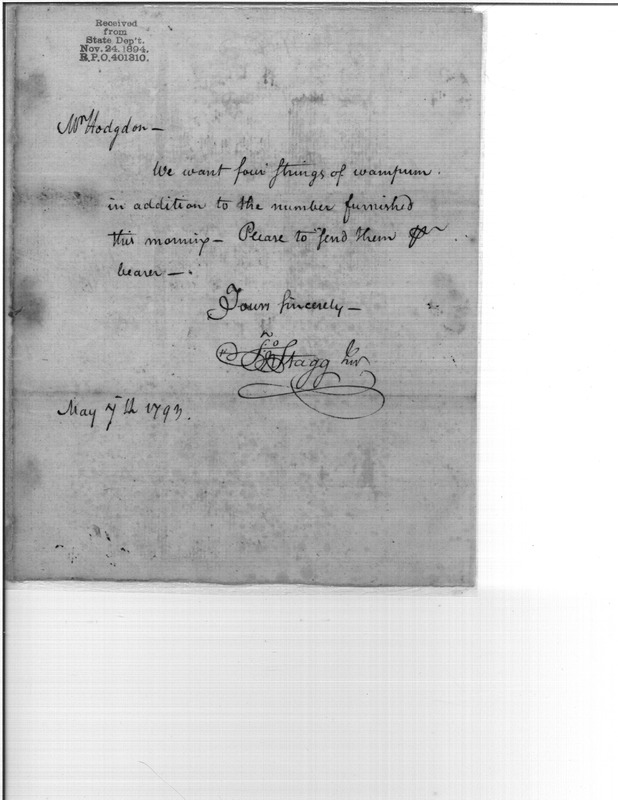 Received
from
State Dep't.
Nov. 24. 1894.
R.P.O. 401310.
Mr Hodgdon —
We want four strings of wampum
in addition to the number furnished
this morning — Please to send them
bearer —.
Yours sincerely —
Stagg Junr
May 7th 1793.